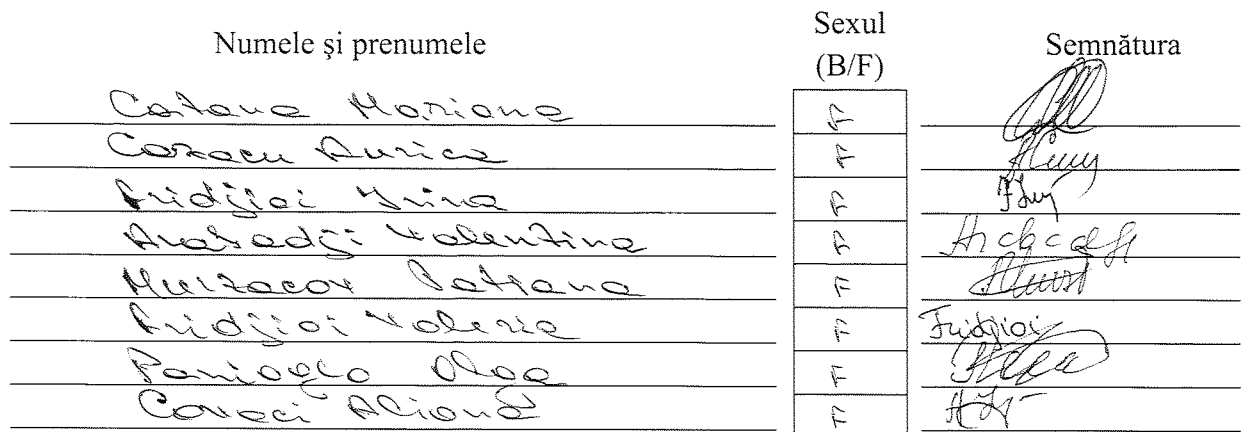 Numele și prenumele Sexul (B/F) Semnătura
Catana Mariana F
Cazacu Aurica F
Fridjioi Irina F
Arabadji Valentina F
Murzacov Tatiana F
Fridjioi Valeria F Fridjioi
Panioglo Olga F
Covaci Aliona F